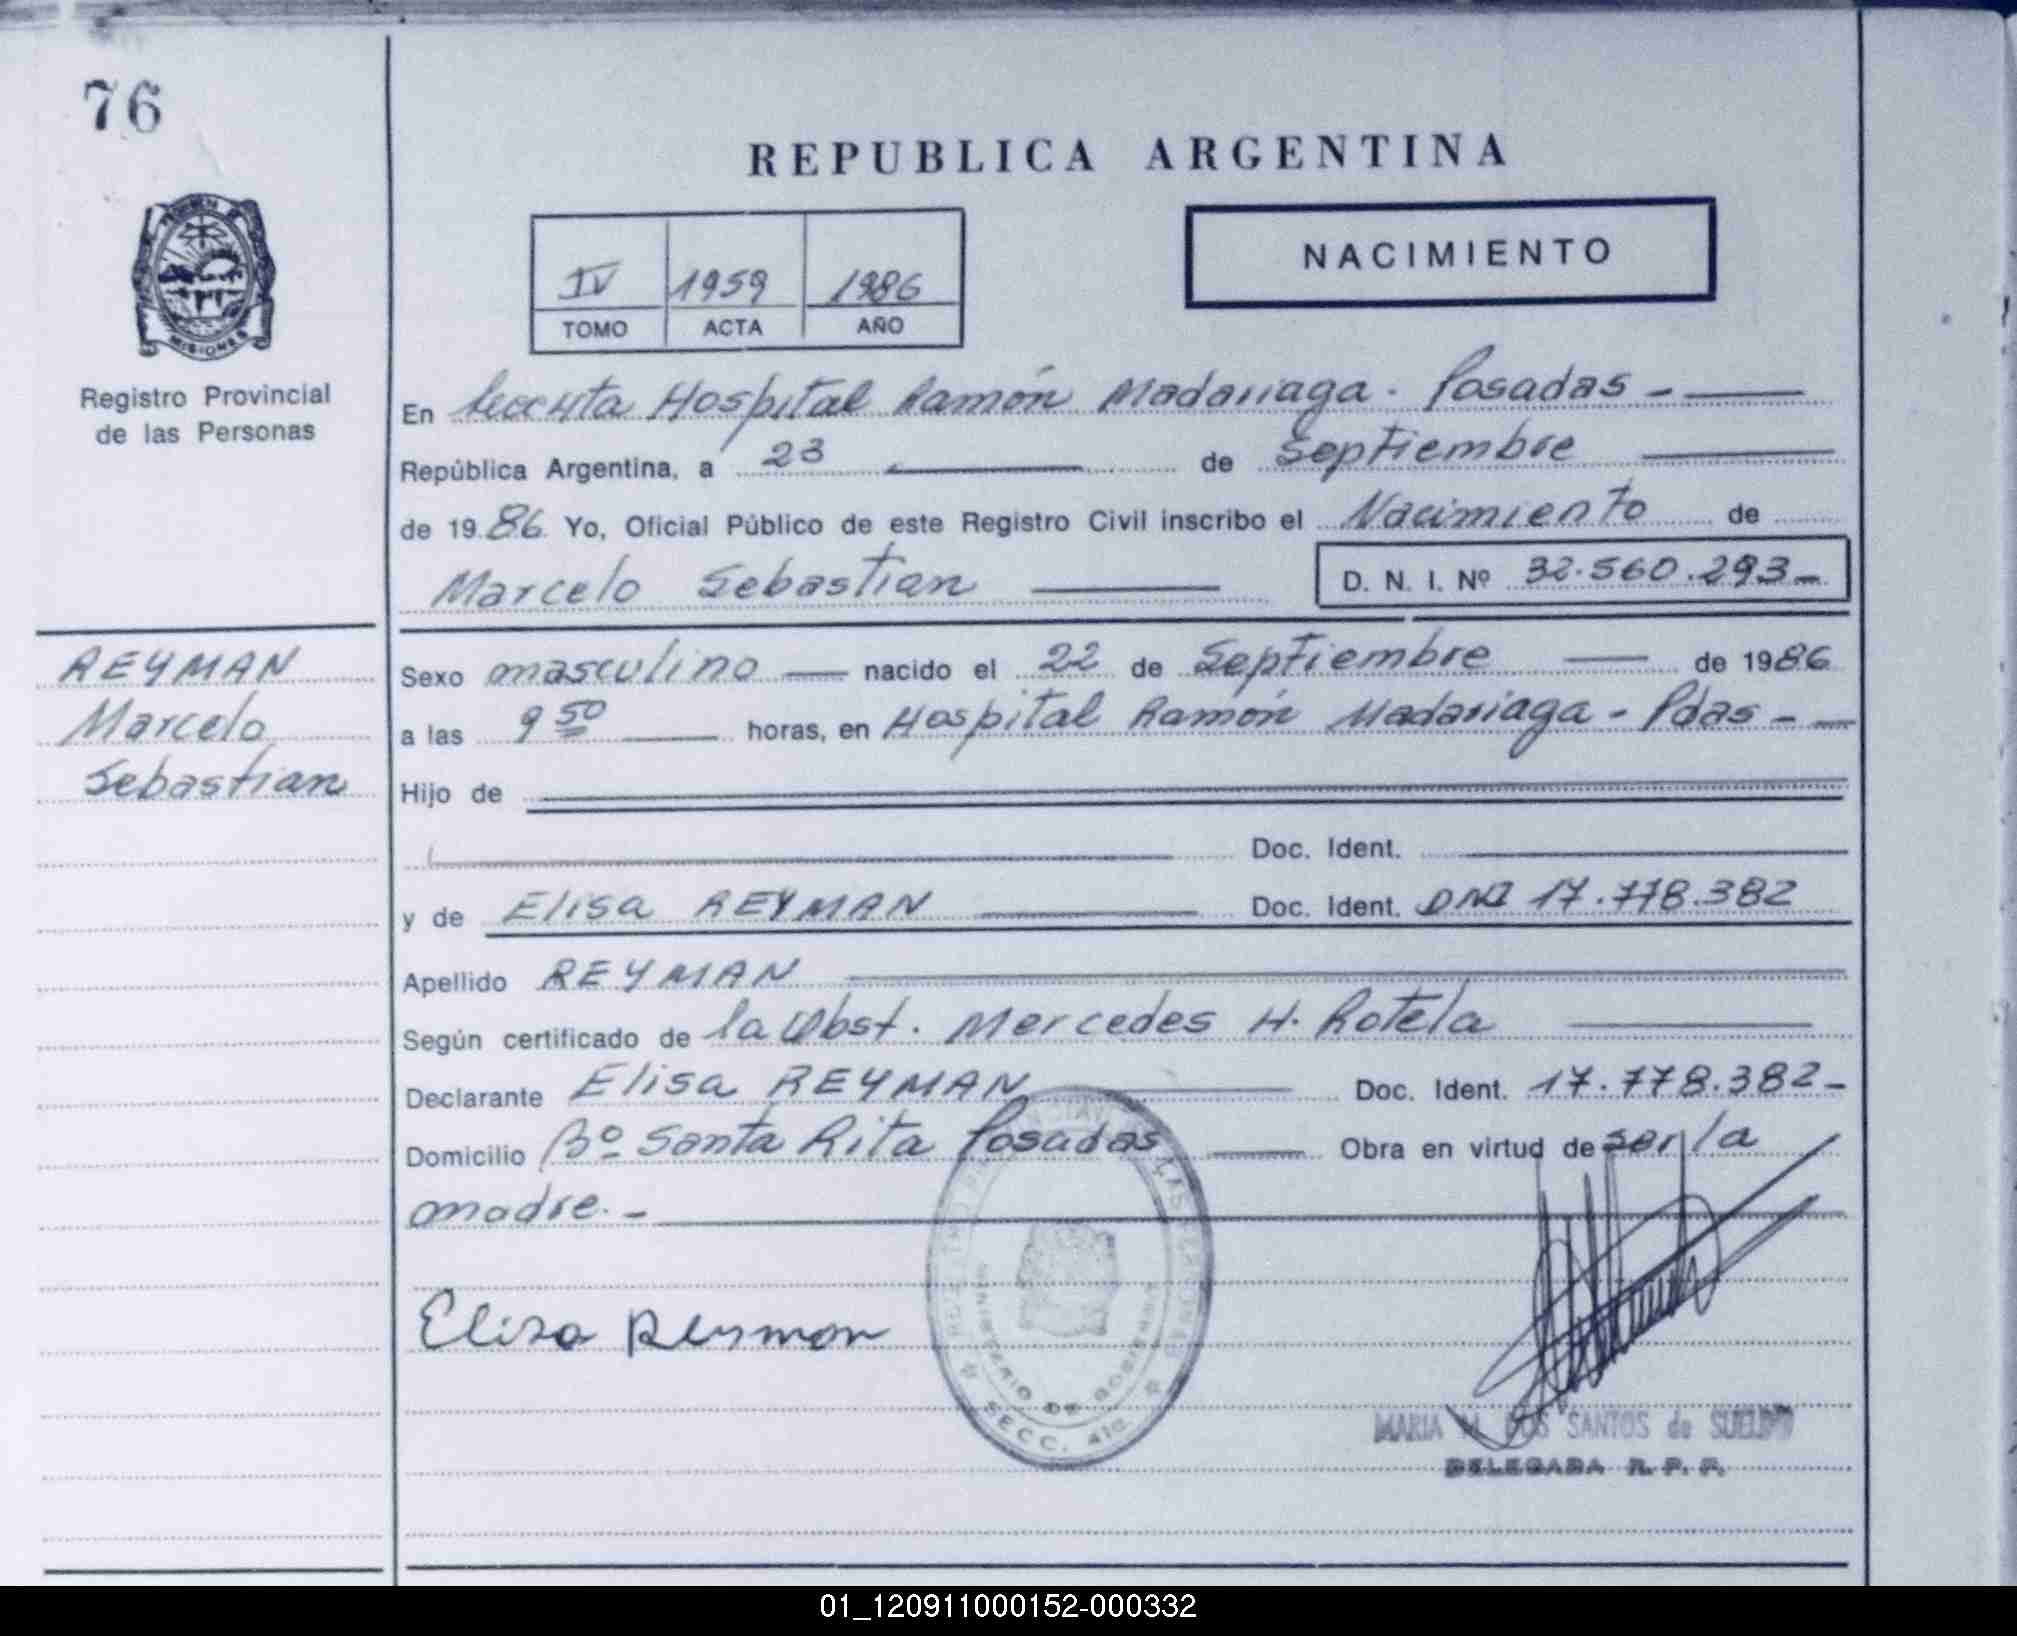 76
REPUBLICA ARGENTINA
NACIMIENTO
IV 1959 1986
TOMO ACTA AÑO
MISIONES
Registro Provincial
de las Personas
En Hospital Ramón Madariaga - Posadas -
República Argentina, a 23 de Septiembre
de 1986 Yo, Oficial Público de este Registro Civil inscribo el Nacimiento de
Marcelo Sebastian D. N. I. Nº 32.560.293-
REYMAN
Marcelo
Sebastian
Sexo masculino nacido el 22 de Septiembre de 1986
a las 9 50 horas, en Hospital Ramón Madariaga - Pdas -
Hijo de
Doc. Ident.
y de Elisa REYMAN Doc. Ident. DNI 17.778.382
Apellido REYMAN
Según certificado de la Obst. Mercedes H. Rotela
Declarante Elisa REYMAN Doc. Ident. 17.778.382-
Domicilio Bº Santa Rita Posadas Obra en virtud de ser la
madre. -
Elisa Reyman
MINISTERIO DE GOBIERNO
SECC. 4ta.
MARIA M. DOS SANTOS de
DELEGADA R. P. P.
01_120911000152-000332